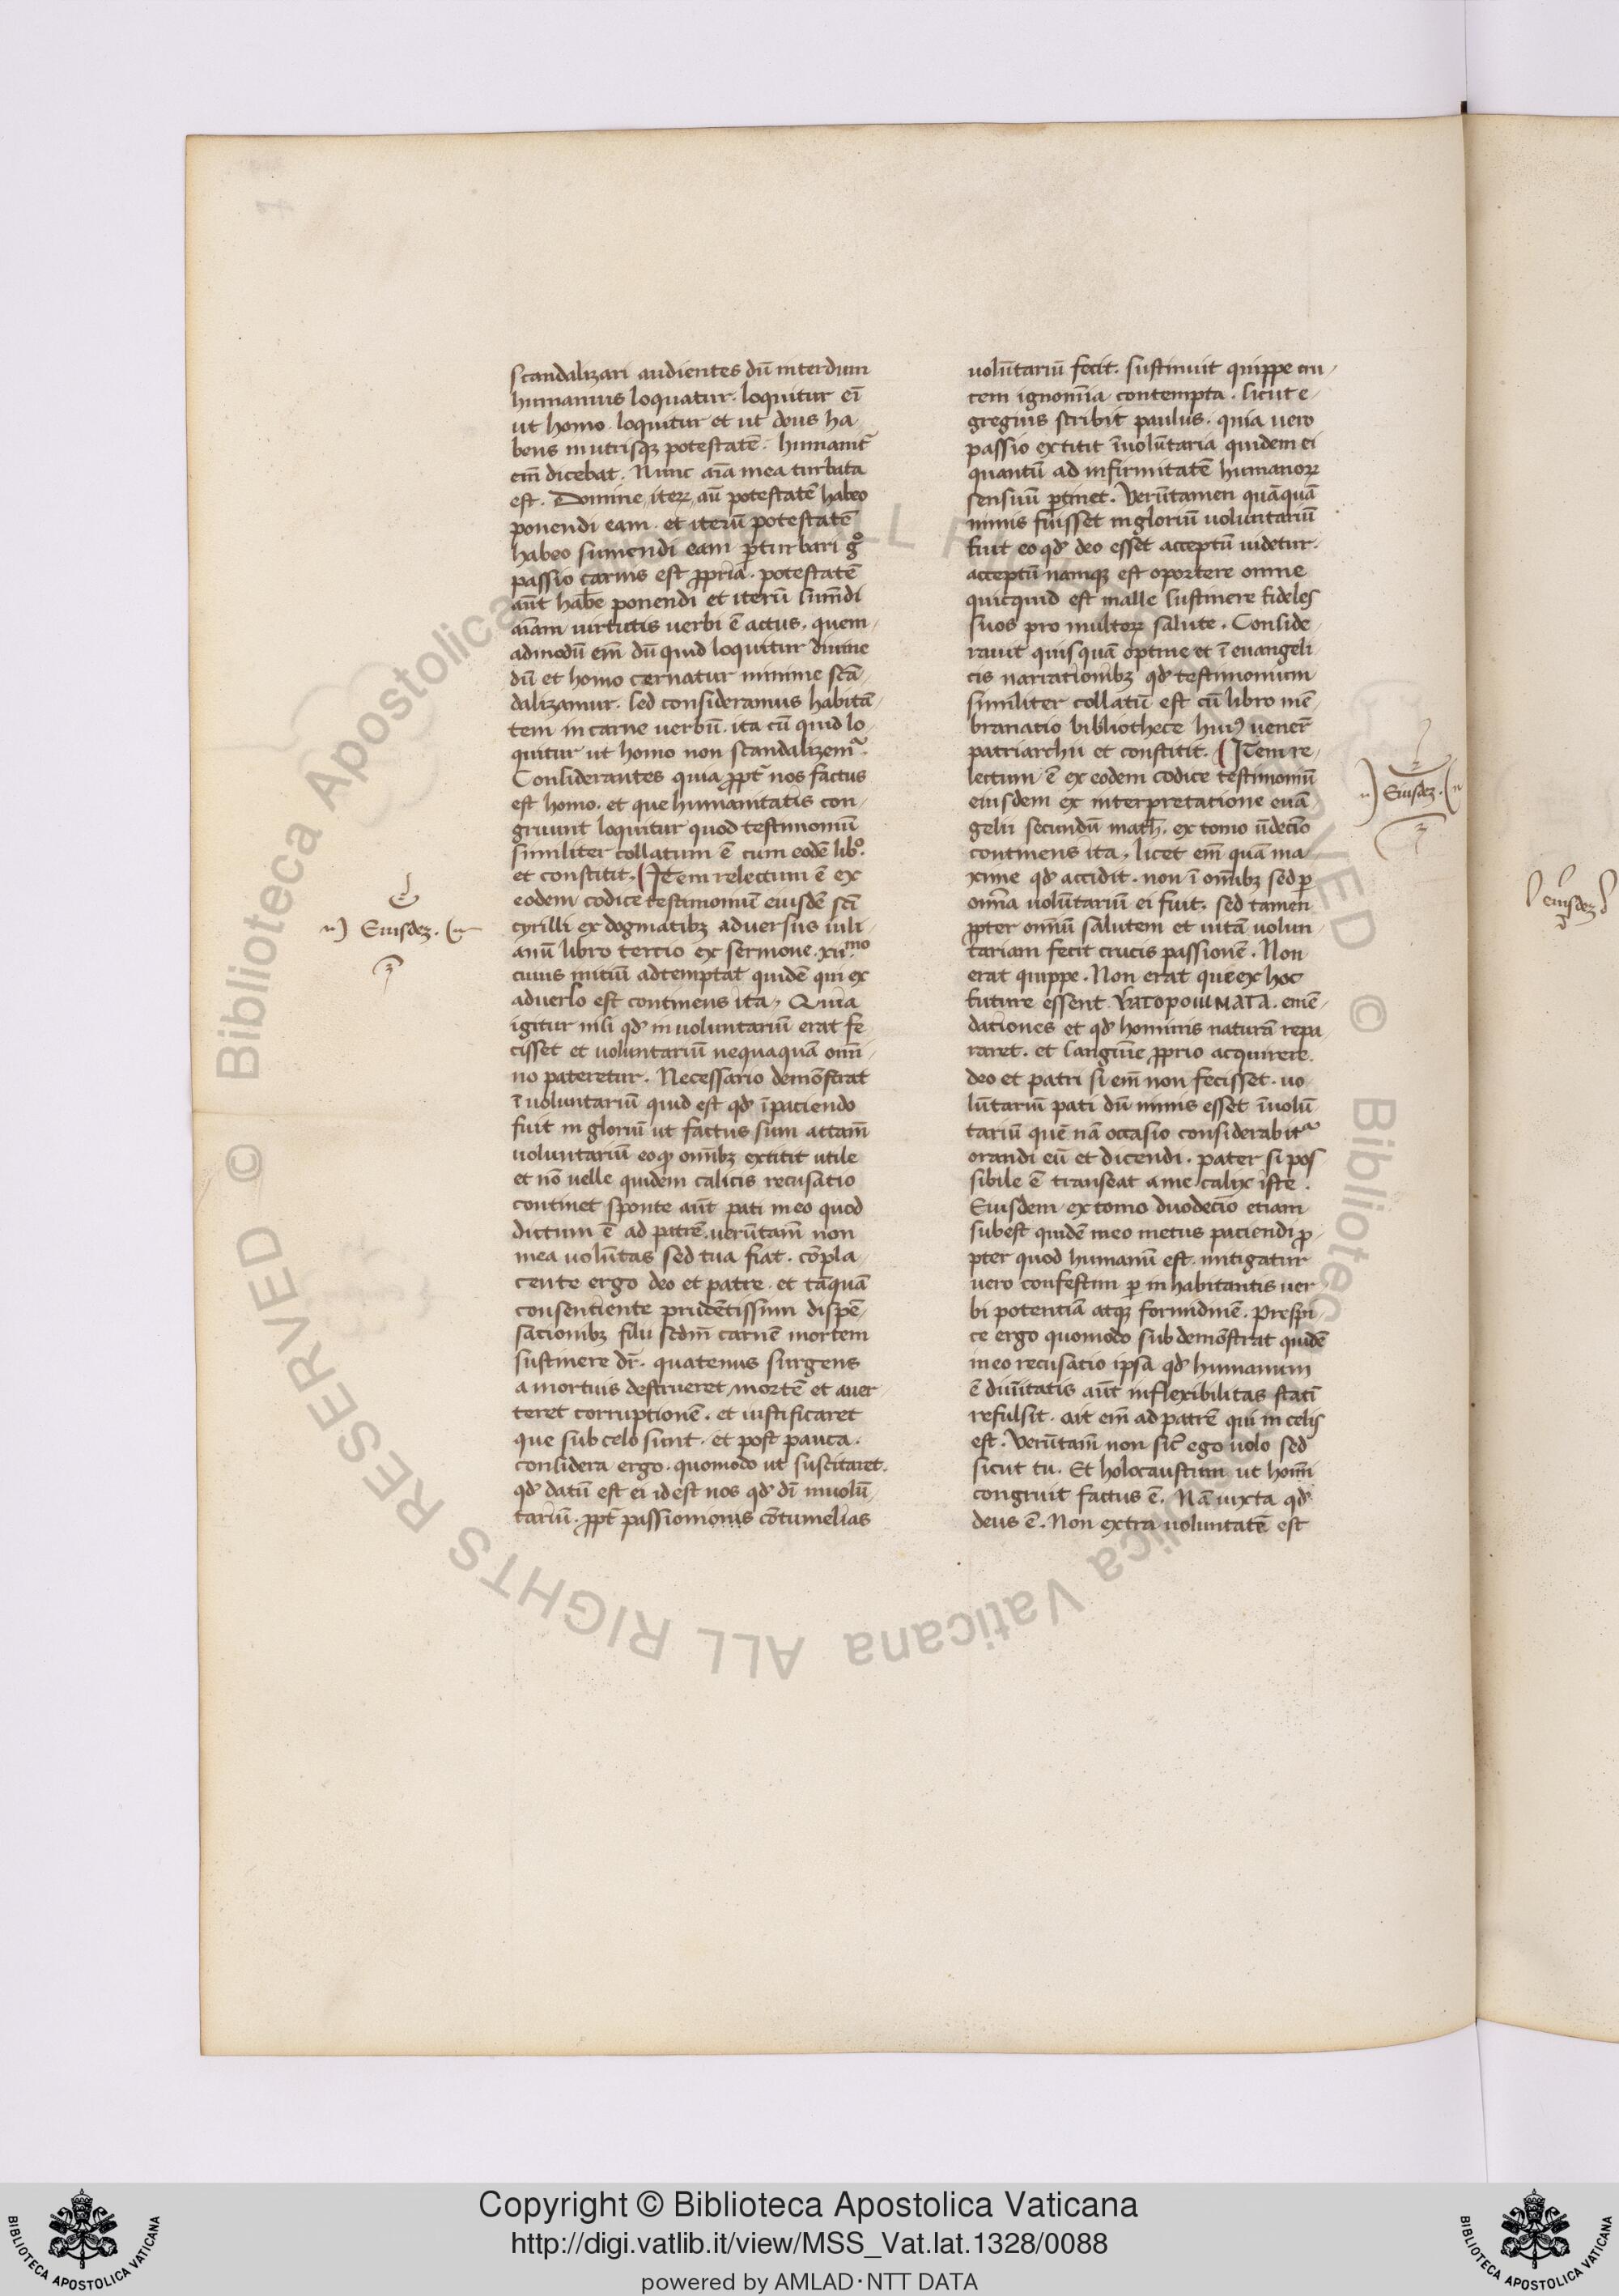 scandalizari audientes dū interdum
humanius loquatur. loquitur eī
ut homo. loquitur et ut deus ha-
bens in utrisqꝫ potestatē. humanit᷑
em̄ dicebat. Nunc aīa mea turbata
est. Domine, iteꝝ, aū potestatē habeo
ponendi eam. et iterū potestatē
habeo sumendi eam ꝑturbari gͦ
passio carnis est ꝓpria. potestatē
aūt habē ponendi et iterū sum̄di
aīam uirtutis uerbi ē actus. quem-
admodū em̄ dū quid loquitur diuine
dū et homo cernatur minime scā-
dalizamur. sed consideramus habitā-
tem in carne uerbū. ita cū quid lo-
quitur ut homo non scandalizem᷑.
Considerantes quia ꝓpt᷑ nos factus
est homo. et que humanitatis con-
gruunt loquitur quod testimoniū
similiter collatum ē cum eodē libͦ.
et constitit. Item relectum ē ex
eodem codice testimoniū eiusdē scī
cyrilli ex dogmatibꝫ aduersus iuli-
anū libro tercio ex sermone .xii.mo
cuius initiū adtemptat quidē qui ex
aduerso est continens ita, Quia
igitur nisi qđ inuoluntariū erat fe-
cisset et uoluntariū nequaquā om̄i-
no pateretur. Necessario demōstrat
īuoluntariū quid est qđ īpaciendo
fuit in gloriū ut factus sum attam̄
uoluntariū eoqꝫ om̄ibꝫ extitit utile
et nō uelle quidem calicis recusatio
continet sponte aūt pati in eo quod
dictum ē ad patrē. uerūtam̄ non
mea uolūtas sed tua fiat. cōpla-
cente ergo deo et patre. et tāquā
consentiente prudētissimi dispē-
sationibꝫ filii scdm̄ carnē mortem
sustinere dr̄. quatenus surgens
a mortuis destrueret mortē et auer-
teret corruptionē. et iustificaret
que sub celo sunt. et post pauca.
considera ergo. quomodo ut suscitaret.
qđ datū est ei id est nos qđ dī inuolū-
tariū. ꝓpt᷑ passiomonis cōtumelias
uolūtariū fecit. sustinuit quippe cru-
cem ignomīa contempta. sicut e-
gregius scribit paulus. quia uero
passio extitit īuolūtaria quidem ei
quantū ad infirmitatē humanoꝝ
sensuū ꝑtinet. Verūtamen quāquā
nimis fuisset ingloriū uoluntariū
fuit eo qđ deo esset acceptū uidetur.
acceptū namqꝫ est oportere omne
quicquid est malle sustinere fideles
suos pro multoꝝ salute. Conside-
rauit quisquā optme et ī euangeli-
cis narrationibꝫ qđ testimonium
similiter collatū est cū libro mē-
branatio bibliothece huiꝰ uener̄
patriarchii et constitit. Item re-
lectum ē ex eodem codice testimoniū
eiusdem ex interpretatione euā-
gelii secundū math̄. ex tomo ūdecīo
continens ita, licet em̄ quā ma-
xime qđ accidit. non ī om̄ibꝫ sed ꝑ
omīa uolūtariū ei fuit. sed tamen
ꝓpter omniū salutem et uitā uolun-
tariam fecit crucis passionē. Non
erat quippe. Non erat que ex hoc
future essent. emē-
dationes et qđ hominis naturā repa-
raret. et sanguīe ꝓprio acquirere
deo et patri si em̄ non fecisset. uo-
lūtariū pati dū nimis esset īuolū-
tariū quē nā occasio considerabit᷑
orandi eū et dicendi. pater si pos-
sibile ē transeat a me calix iste.
Eiusdem ex tomo duodecīo etiam
subest quidē in eo metus paciendi ꝓ-
pter quod humanū est. mitigatur
uero confestim ꝑ inhabitantis uer-
bi potentiā atqꝫ formidinē. Prespi-
ce ergo quomodo sub demōstrat quidē
in eo recusatio ipsa qđ humanum
ē diuītatis aūt inflexibilitas statī
refulsit. ait em̄ ad patrē qui in celis
est. Verūtam̄ non sic̄ ego uolo sed
sicut tu. Et holocaustum ut homī
congruit factus ē. Nā iuxta qđ
deus ē. Non extra uoluntatē est
Eiusdeꝫ.
Eiusdeꝫ.
eiusdeꝫ
Copyright © Biblioteca Apostolica Vaticana
http://digi.vatlib.it/view/MSS_Vat.lat.1328/0088
powered by AMLAD·NTT DATA
BIBLIOTECA APOSTOLICA VATICANA
BIBLIOTECA APOSTOLICA VATICANA
© Biblioteca Apostolica Vaticana ALL RIGHTS RESERVED